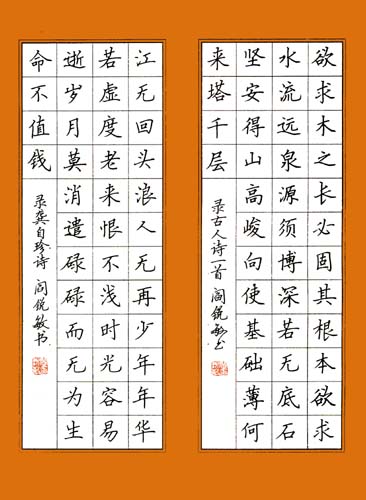 欲求木之长必固其根本欲求
水流远泉源须博深若无底石
坚安得山高峻向使基础薄何
来塔千层
录古人诗一首 阎锐敏书
江无回头浪人无再少年年华
若虚度老来恨不浅时光容易
逝岁月莫消遣碌碌而无为生
命不值钱
录龚自珍诗 阎锐敏书